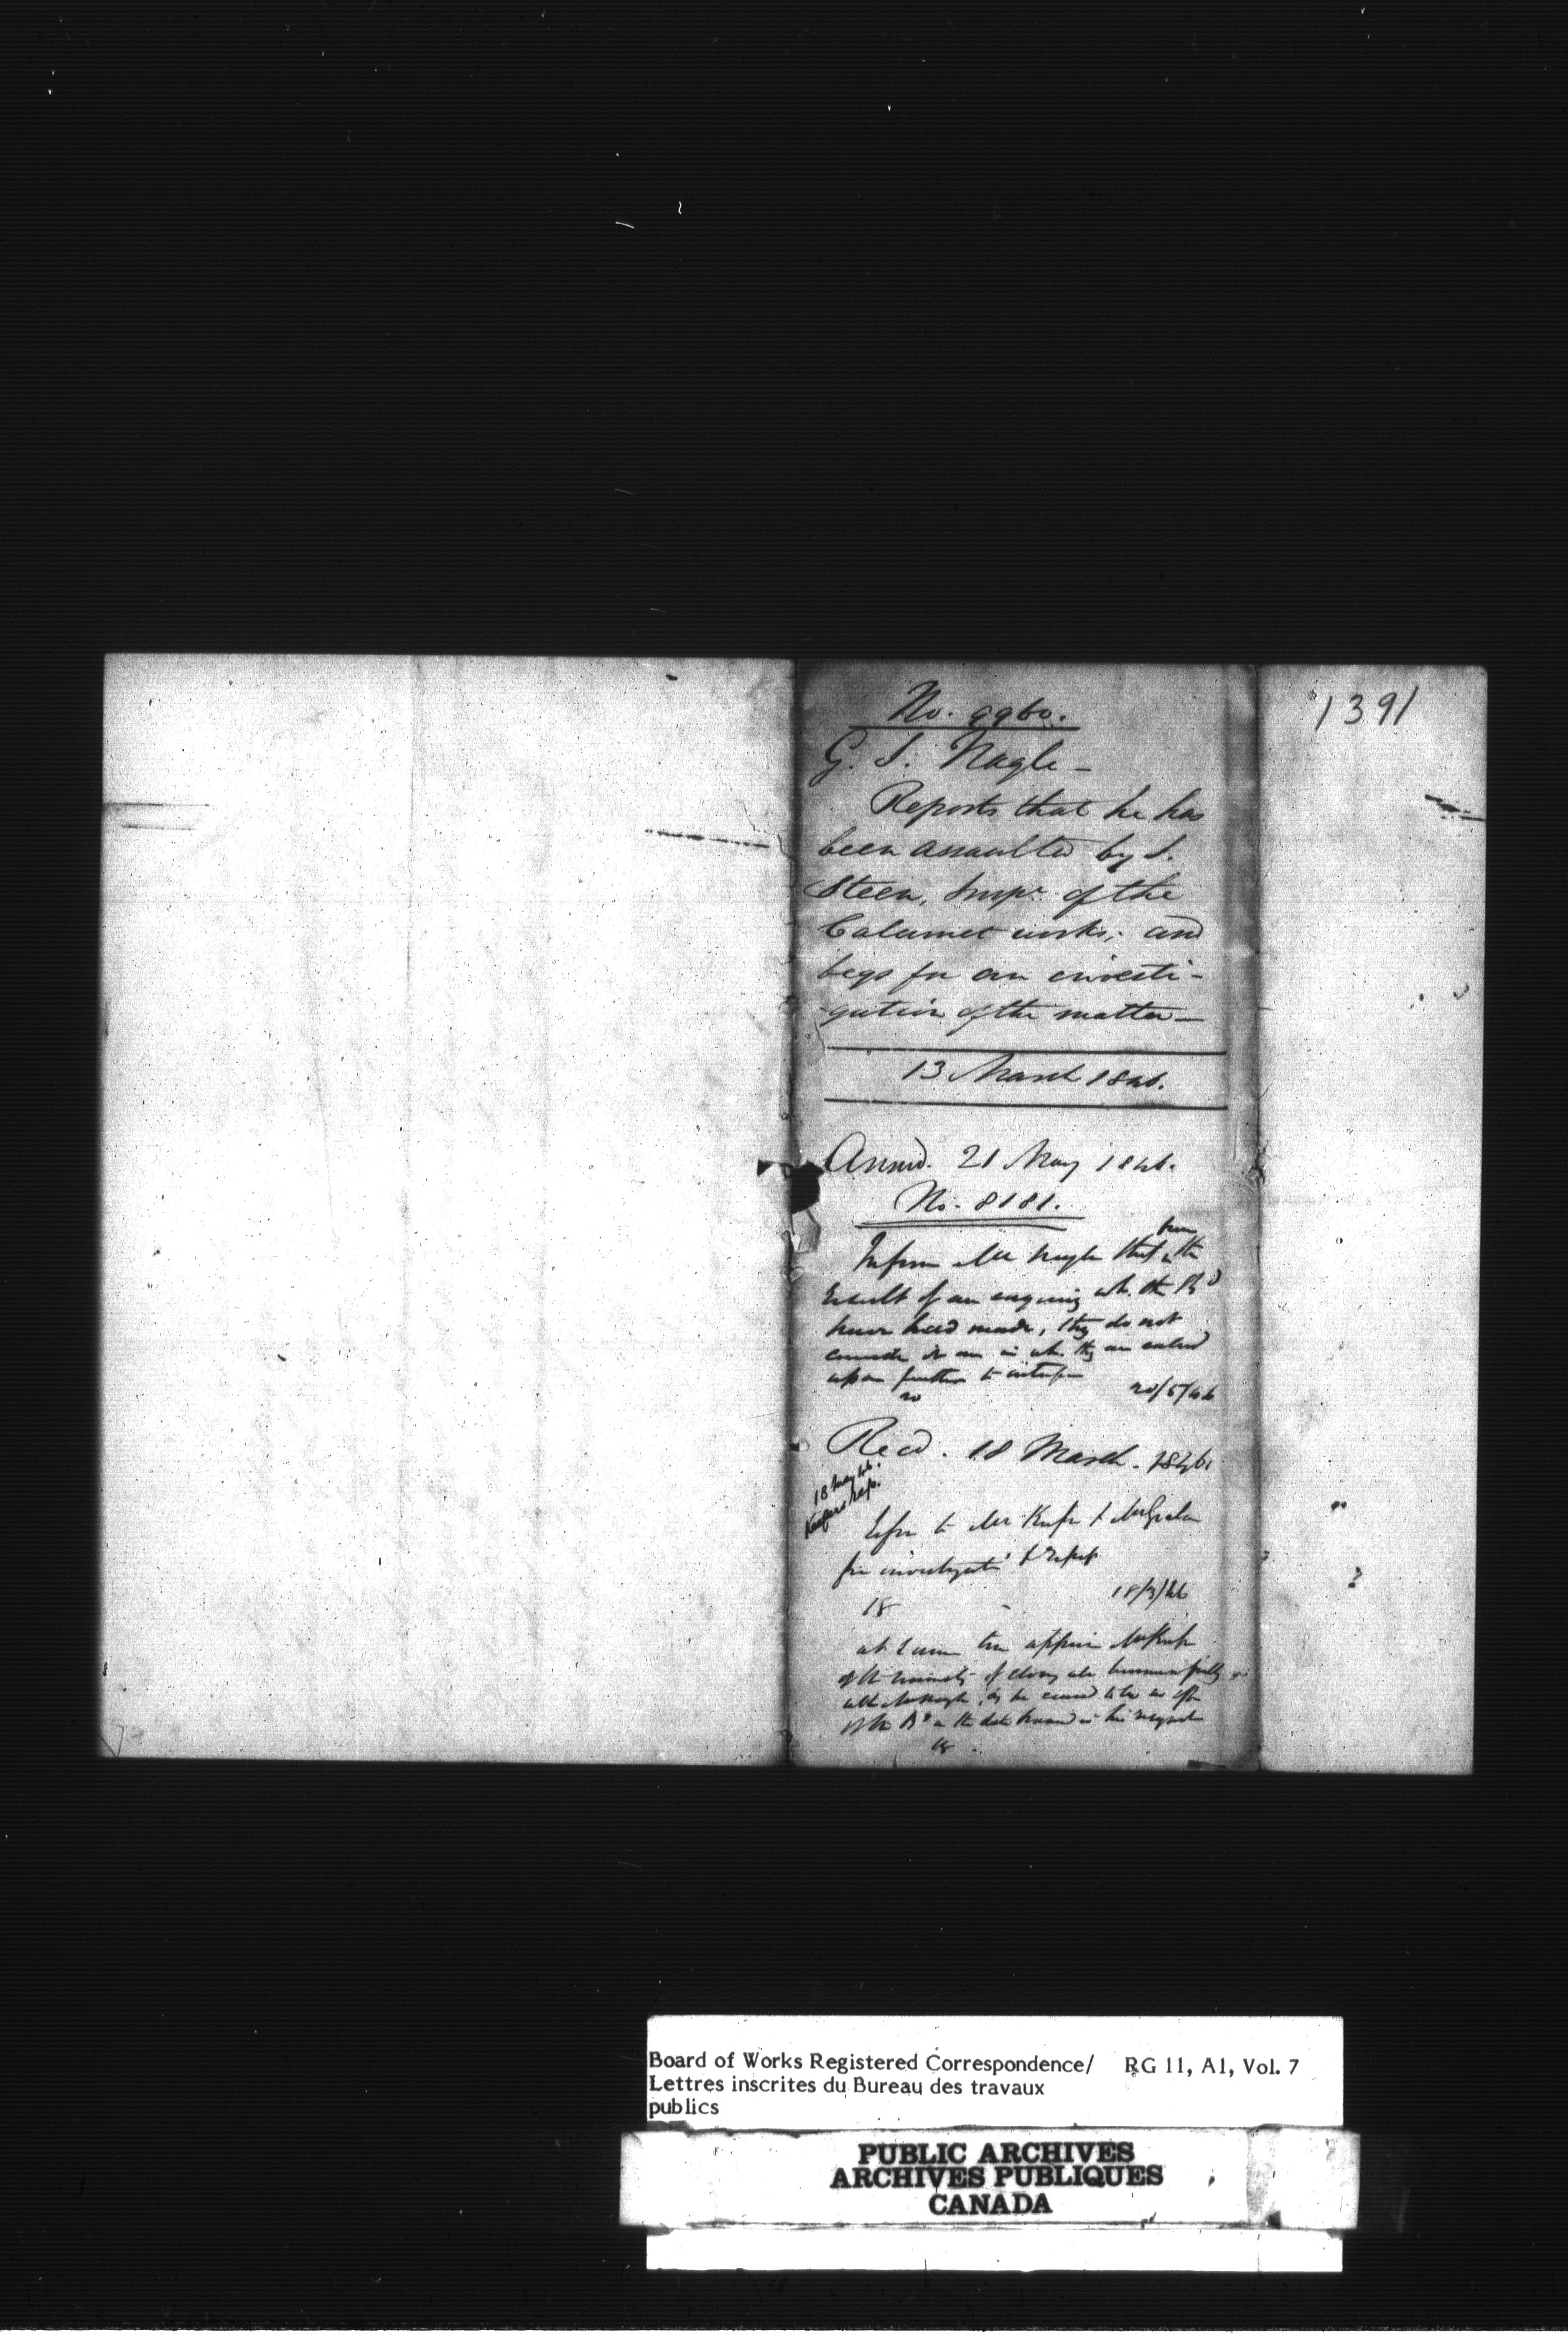 No. 9960.
G. S. Nagle -
Reports that he has
been assaulted by S.
Steen, Supr. of the
Calumet works; and
begs for an investi-
gation of the matter -
13 March 1846.
Answd. 21 May 1846.
No. 8181.
Inform Mr Nagle that from the
result of an enquiry wh. the Bd
have had made, they do not
consider it one in wh. they are called
upon further to interfere
20/5/46
Recd. 18 March. 1846
18 May 46.
Keefers rep.
Refer to Mr Keefer &
for investigatn & report
18/3/46
18
at same time apprise Mr Keefer
of the necessity of
with Mr Nagle, as he
of the Bd
1391
Board of Works Registered Correspondence/ RG 11, A1, Vol. 7
Lettres inscrites du Bureau des travaux
publics
PUBLIC ARCHIVES
ARCHIVES PUBLIQUES
CANADA